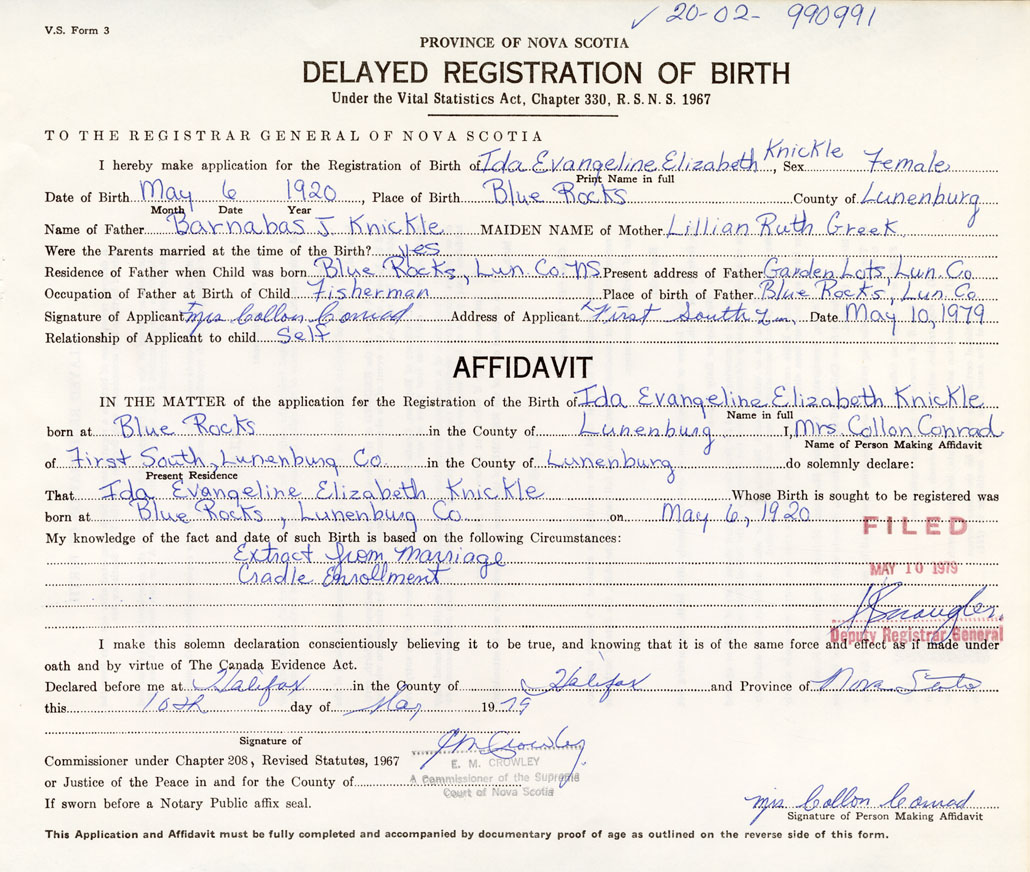 V.S. Form 3
✓ 20-02- 990991
PROVINCE OF NOVA SCOTIA
DELAYED REGISTRATION OF BIRTH
Under the Vital Statistics Act, Chapter 330, R.S.N.S. 1967
TO THE REGISTRAR GENERAL OF NOVA SCOTIA
I hereby make application for the Registration of Birth of Ida Evangeline Elizabeth Knickle, Sex Female
Print Name in full
Date of Birth May 6 1920, Place of Birth Blue Rocks County of Lunenburg
Month Date Year
Name of Father Barnabas J. Knickle MAIDEN NAME of Mother Lillian Ruth Greek
Were the Parents married at the time of the Birth? yes
Residence of Father when Child was born Blue Rocks, Lun. Co. NS. Present address of Father Garden Lots, Lun. Co.
Occupation of Father at Birth of Child Fisherman Place of birth of Father Blue Rocks, Lun Co
Signature of Applicant Mrs Collon Conrad Address of Applicant First South Date May 10, 1979
Relationship of Applicant to child Self
AFFIDAVIT
IN THE MATTER of the application for the Registration of the Birth of Ida Evangeline Elizabeth Knickle
Name in full
born at Blue Rocks in the County of Lunenburg I, Mrs Collon Conrad
Name of Person Making Affidavit
of First South, Lunenburg Co. in the County of Lunenburg do solemnly declare:
Present Residence
That Ida Evangeline Elizabeth Knickle Whose Birth is sought to be registered was
born at Blue Rocks, Lunenburg Co on May 6, 1920
FILED
My knowledge of the fact and date of such Birth is based on the following Circumstances:
Extract from Marriage
MAY 10 1979
Cradle Enrollment
Deputy Registrar General
I make this solemn declaration conscientiously believing it to be true, and knowing that it is of the same force and effect as if made under
oath and by virtue of The Canada Evidence Act.
Declared before me at Halifax in the County of Halifax and Province of Nova Scotia
this 10th day of May 1979
Signature of
E M Crowley
Commissioner under Chapter 208, Revised Statutes, 1967
E. M. CROWLEY
or Justice of the Peace in and for the County of
A Commissioner of the Supreme
Court of Nova Scotia
If sworn before a Notary Public affix seal.
Mrs Collon Conrad
Signature of Person Making Affidavit
This Application and Affidavit must be fully completed and accompanied by documentary proof of age as outlined on the reverse side of this form.